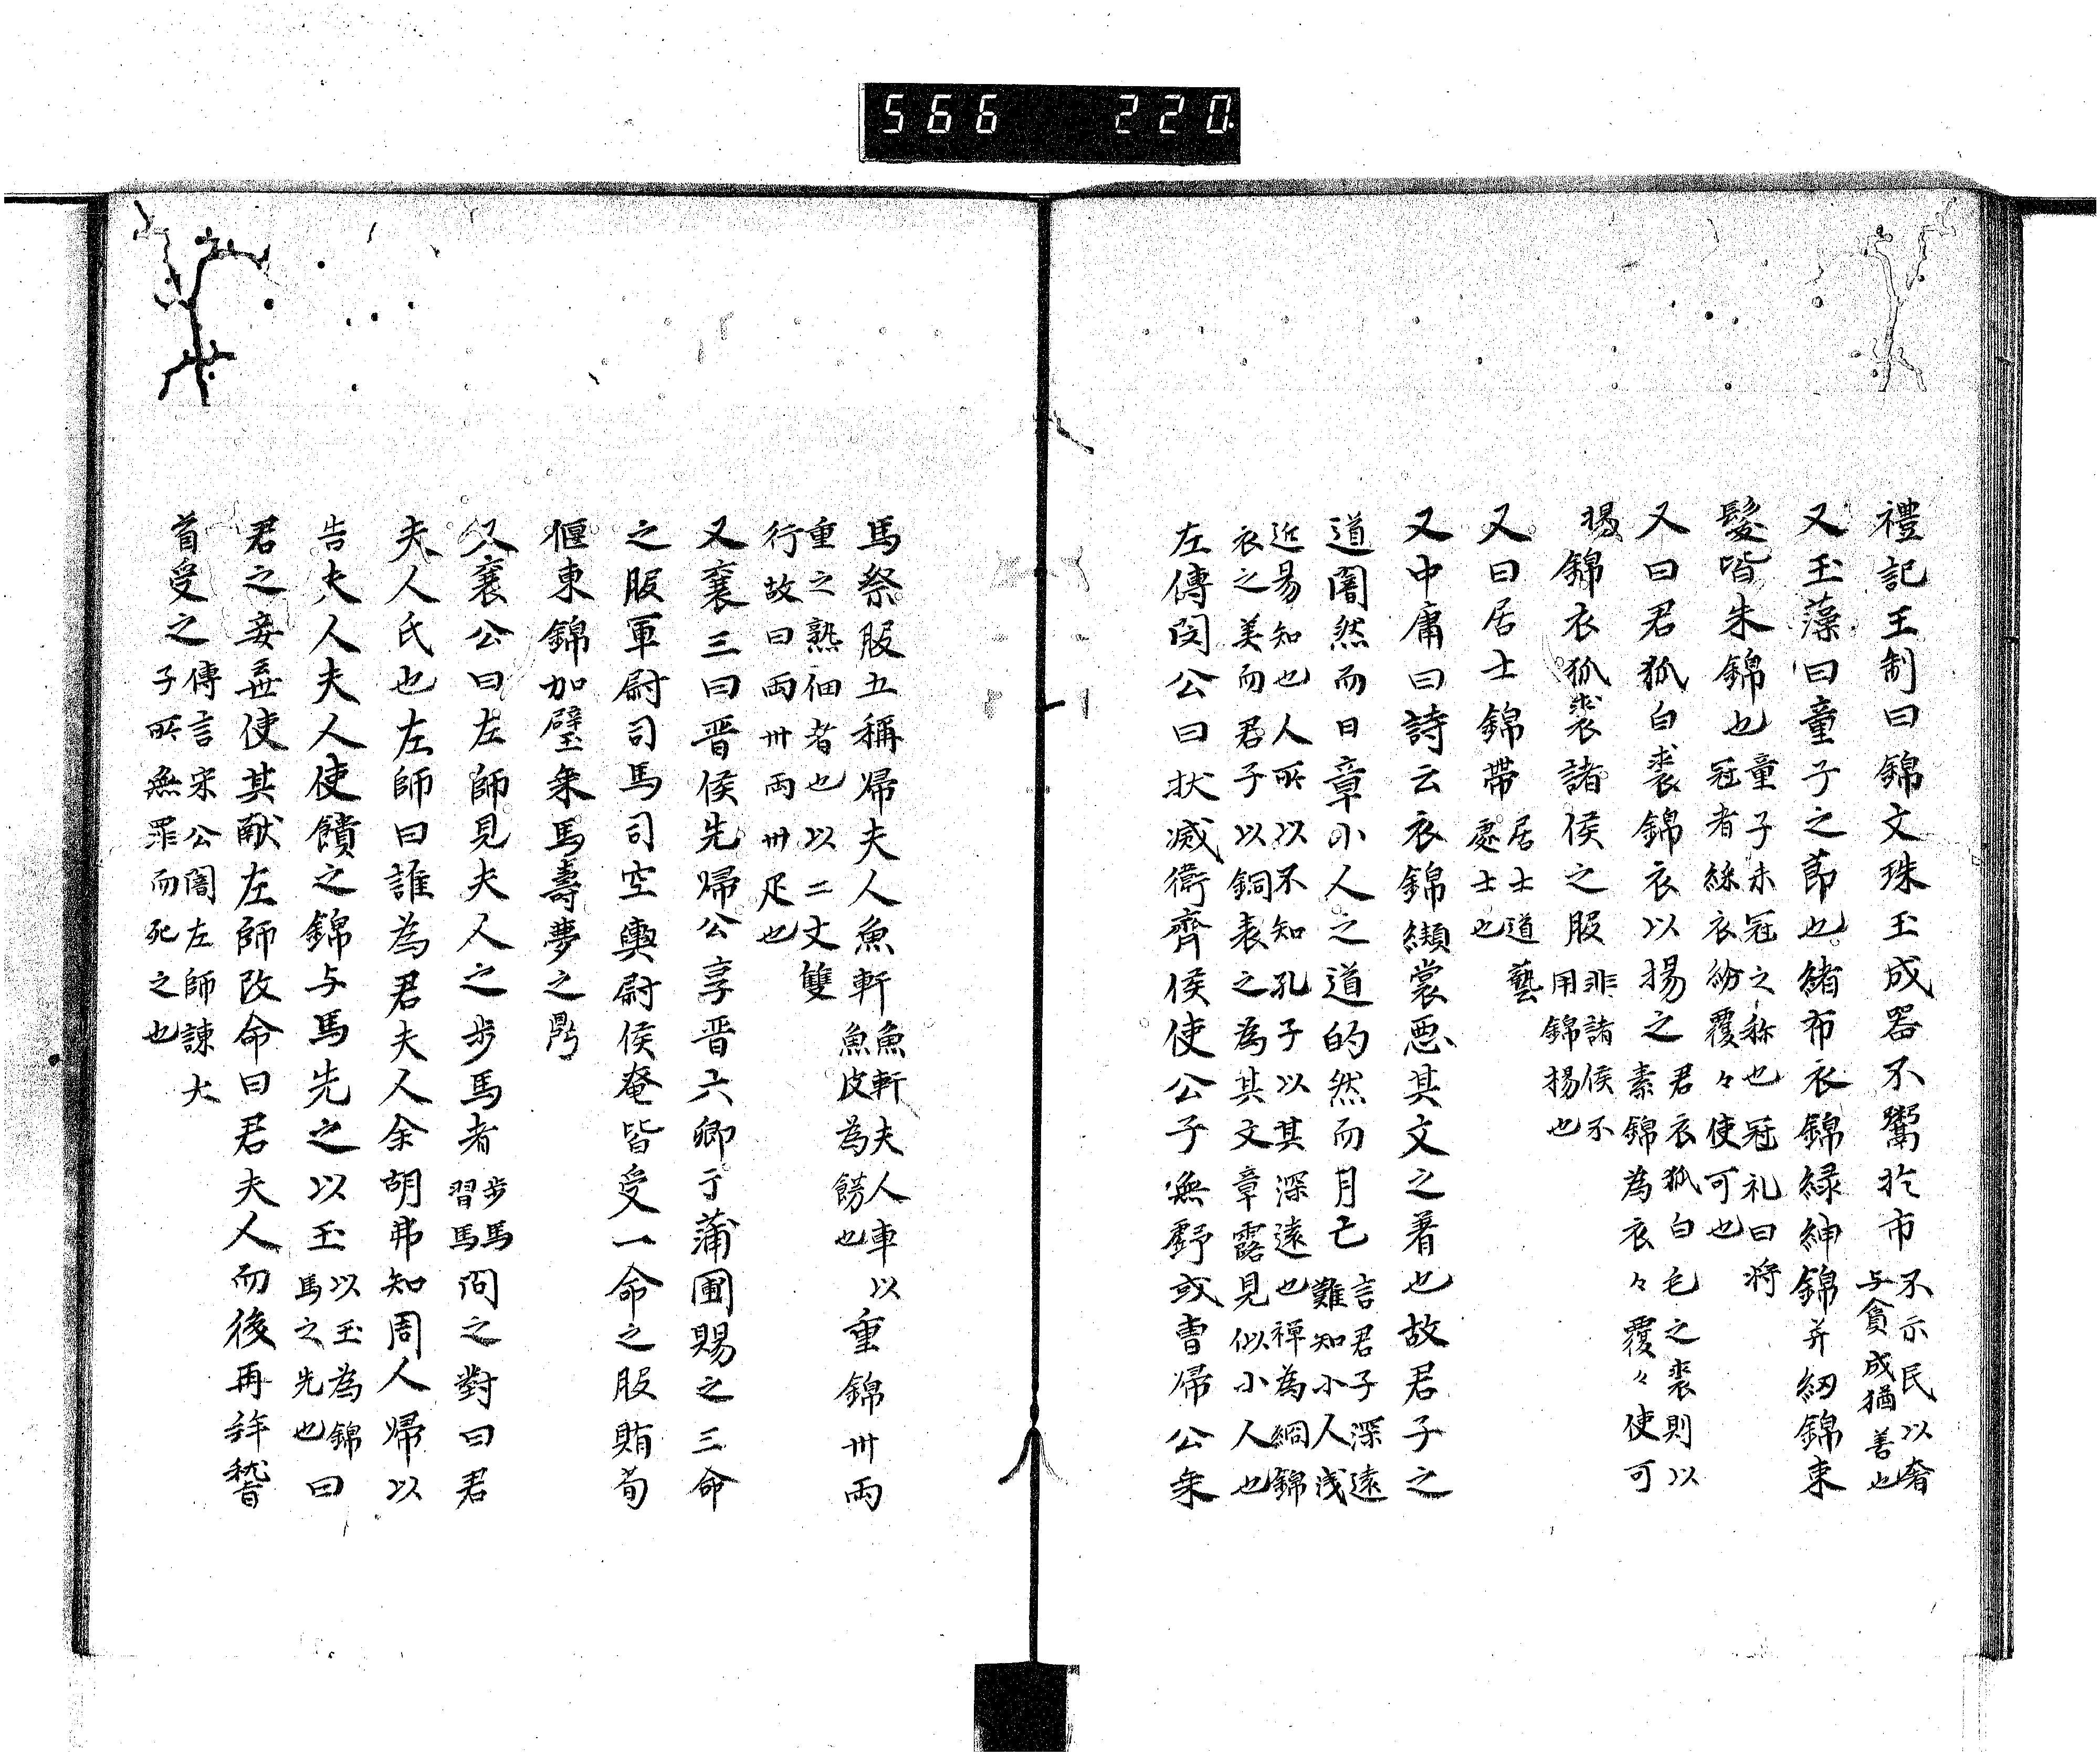 566 220
禮記王制曰錦文珠玉成器不鬻於市不示民以奢与貪成猶善也
又玉藻曰童子之節也緒布衣錦緑紳錦并紉錦束
髮皆朱錦也童子未冠之称也冠礼曰将冠者綵衣紛覆々使可也
又曰君狐白裘錦衣以揚之君衣狐白毛之裘則以素錦為衣々覆々使可
揚錦衣狐裘諸侯之服非諸侯不用錦揚也
又曰居士錦帶居士道藝處士也
又中庸曰詩云衣錦纈裳悪其文之著也故君子之
道闇然而日章小人之道的然而月亡言君子深遠難知小人浅
近易知也人所以不知孔子以其深遠也禅為絅錦
衣之美而君子以銅表之為其文章露見似小人也
左傳閔公曰状滅衛齊侯使公子無虧或曺帰公乗
馬祭服五稱帰夫人魚軒魚軒夫人車以魚皮為餝也重錦卅兩
重之熟佃者也以二丈雙
行故曰兩卅兩卅疋也
又襄三曰晋侯先帰公享晋六卿于蒲圃賜之三命
之服軍尉司馬司空輿尉侯奄皆受一命之服賄荀
偃東錦加璧乗馬壽夢之鼎
又襄公曰左師見夫人之步馬者步馬習馬問之對曰君
夫人氏也左師曰誰為君夫人余胡弗知周人帰以
告夫人夫人使饋之錦与馬先之以玉以玉為錦馬之先也曰
君之妾弃使其献左師改命曰君夫人而後再拜稽
首受之傳言宋公闇左師諌大子所無罪而死之也